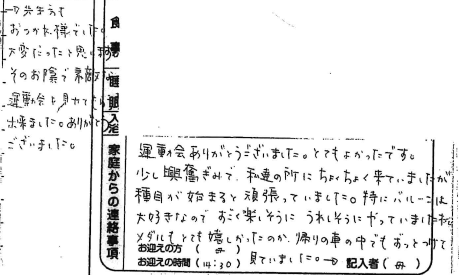 食事
睡眠
入浴
家庭からの連絡事項
運動会ありがとうございました。とてもよかったです。
少し興奮ぎみで、私達の所にちょくちょく来ていましたが
種目が始まると頑張っていました。特にバルーンは
大好きなので すごく楽しそうに うれしそうに やっていました
メダルもとても嬉しかったのか、帰りの車の中でもずっとつけて
お迎えの方 ( 母 ) 見ていました。→
お迎えの時間 (14:30) 記入者 (母)
おつかれ様でした。
大変だったと思います
そのお陰で素敵な
運動会を見
出来ました。ありがとう
ございました。